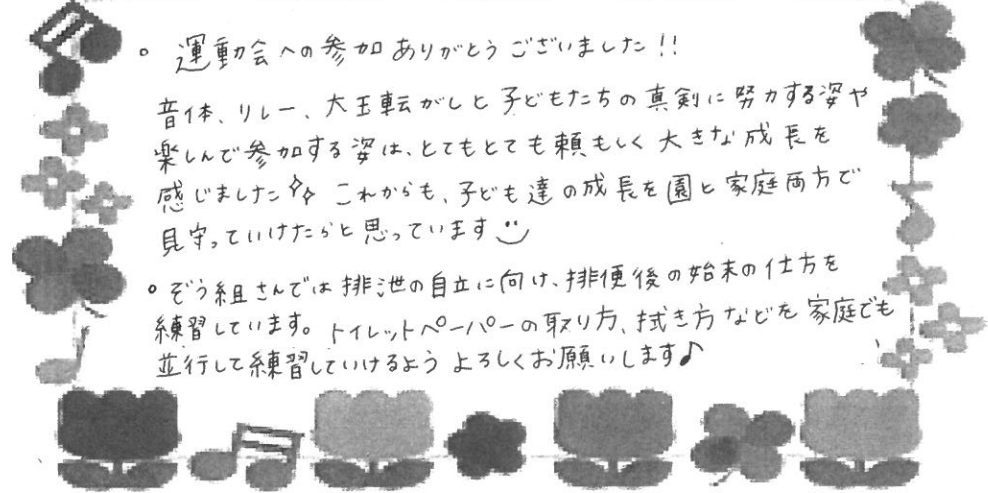 。運動会への参加ありがとうございました!!
音体、リレー、大玉転がしと子どもたちの真剣に努力する姿や
楽しんで参加する姿は、とてもとても頼もしく大きな成長を
感じました これからも、子ども達の成長を園と家庭両方で
見守っていけたらと思っています
。ぞう組さんでは排泄の自立に向け、排便後の始末の仕方を
練習しています。トイレットペーパーの取り方、拭き方などを家庭でも
並行して練習していけるようよろしくお願いします♪